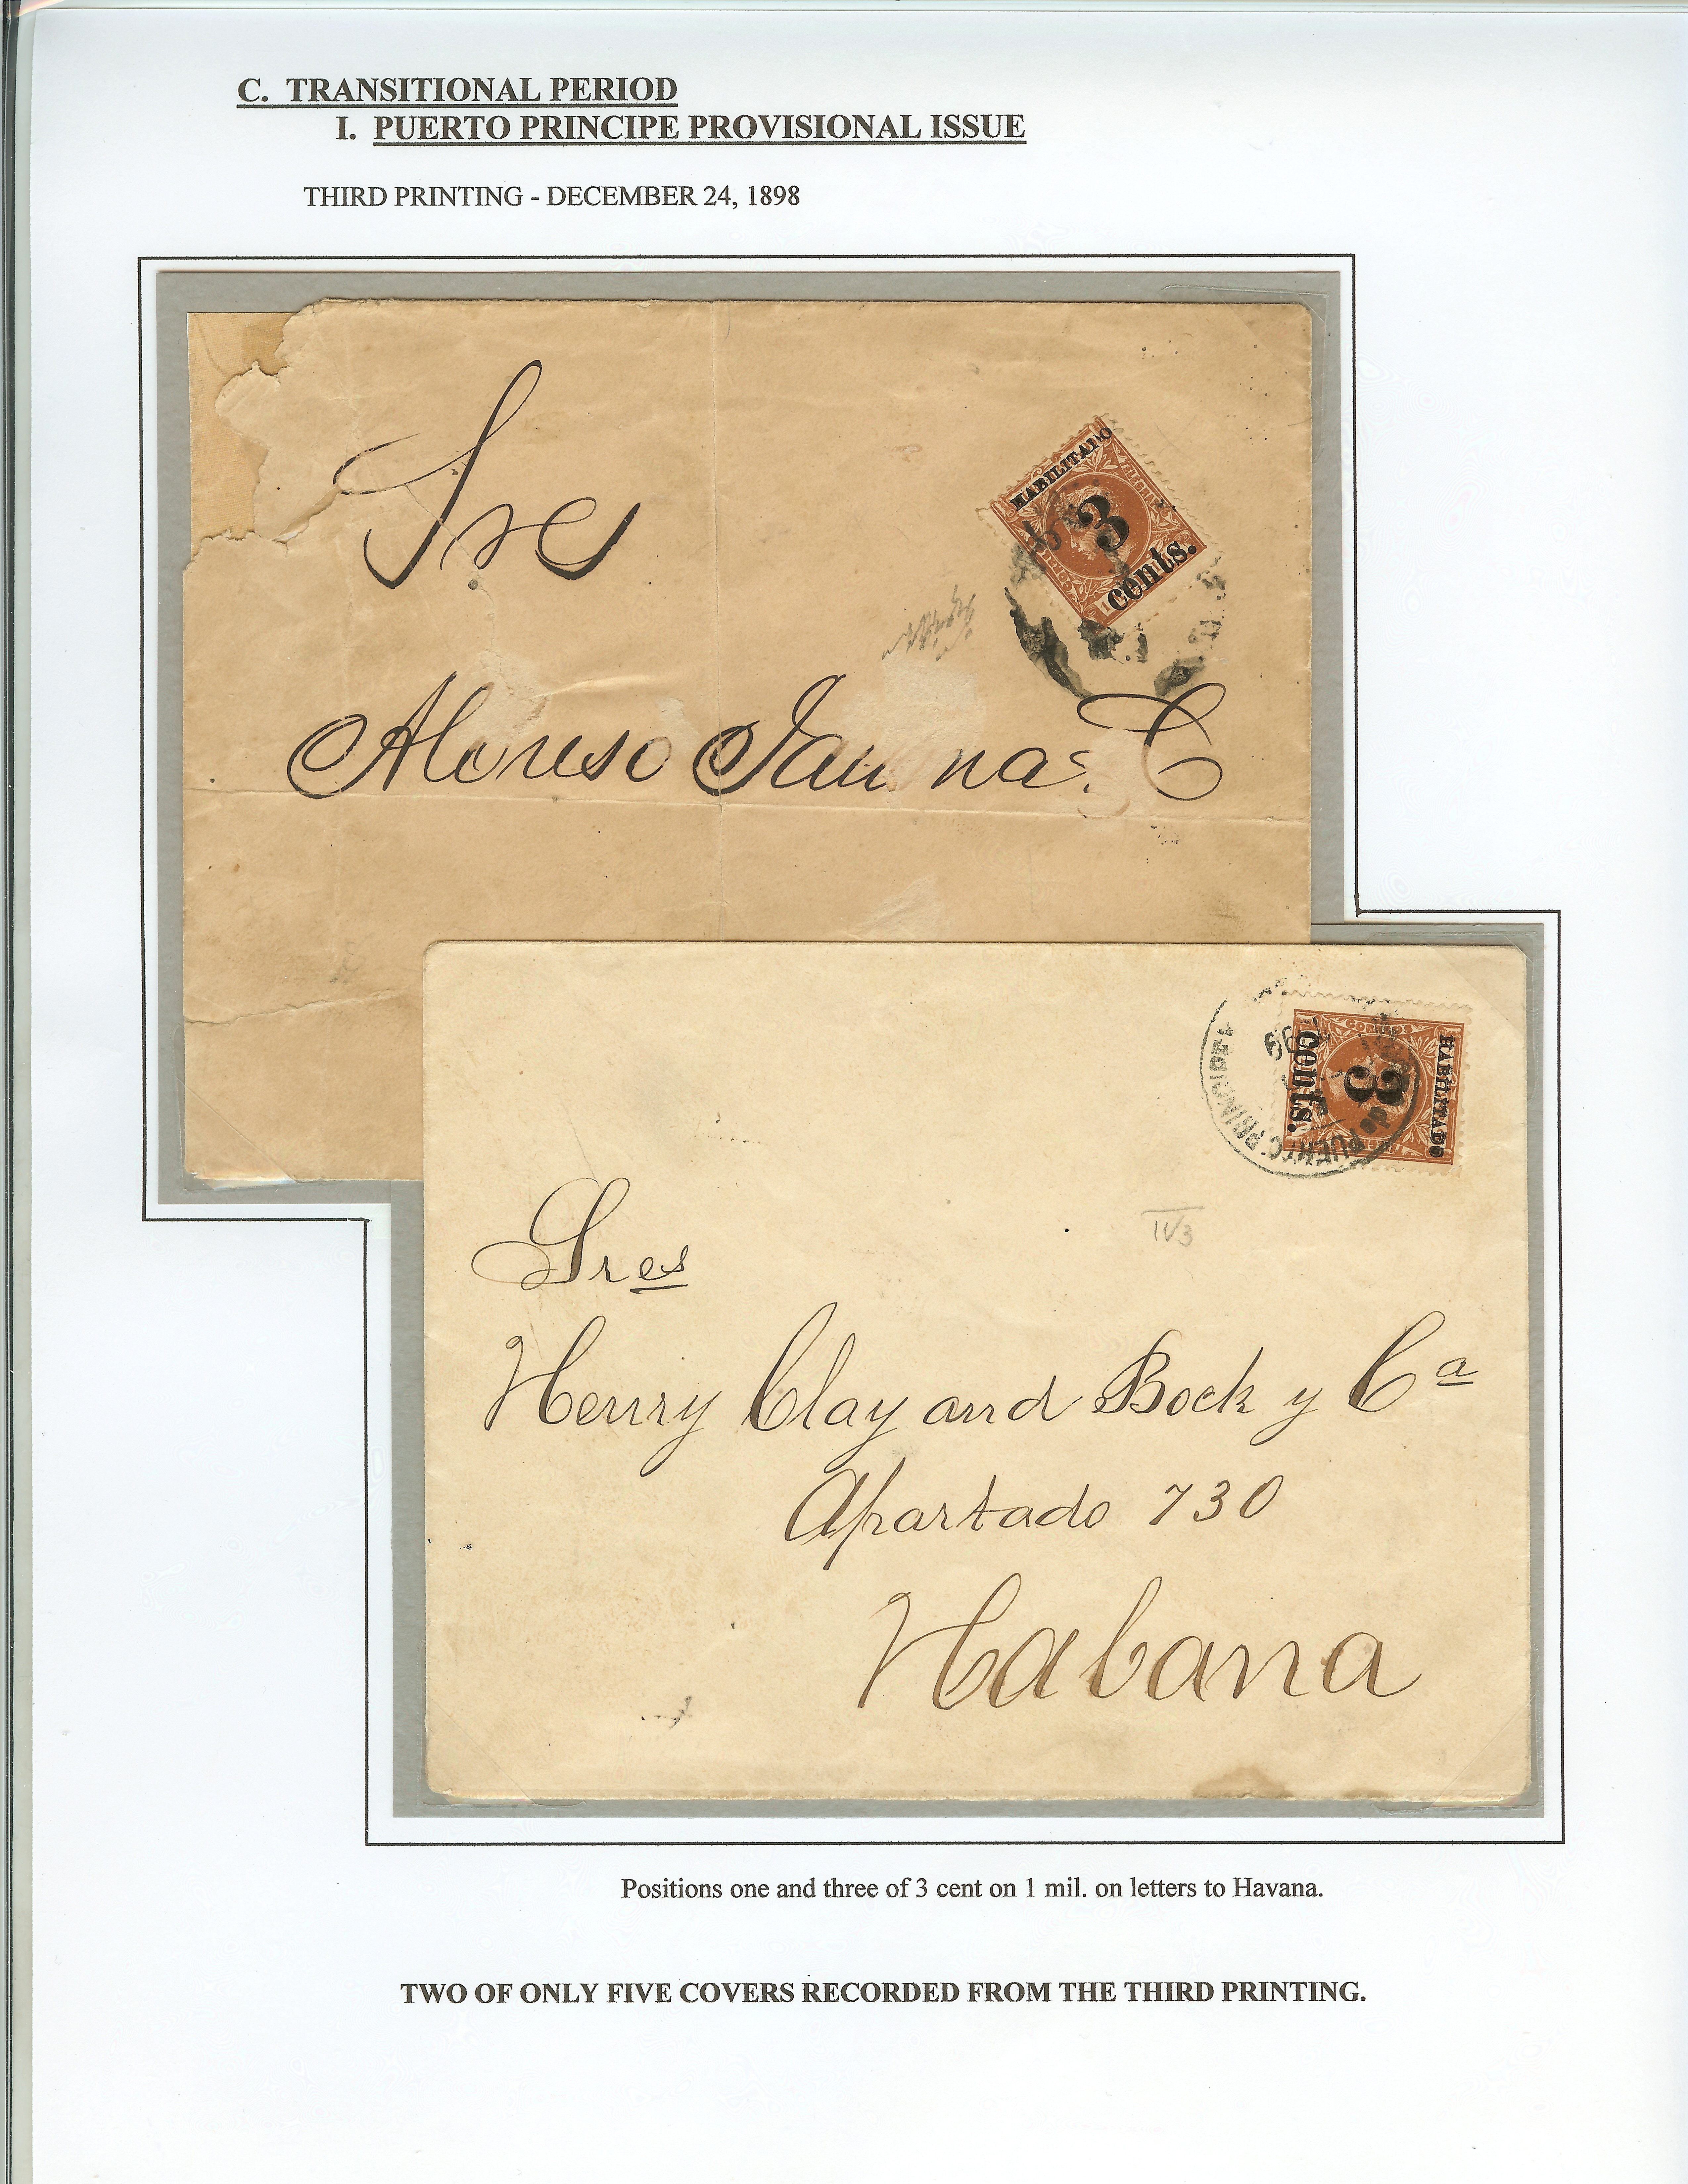 C. TRANSITIONAL PERIOD
I. PUERTO PRINCIPE PROVISIONAL ISSUE
THIRD PRINTING - DECEMBER 24, 1898
HABILITADO
3
cents.
Sres
Alonso Jau na y C
CORREOS
HABILITADO
3
cents.
99
PUERTO-PRINCIPE
IV3
Sres
Henry Clay and Bock y Ca
Apartado 730
Habana
Positions one and three of 3 cent on 1 mil. on letters to Havana.
TWO OF ONLY FIVE COVERS RECORDED FROM THE THIRD PRINTING.